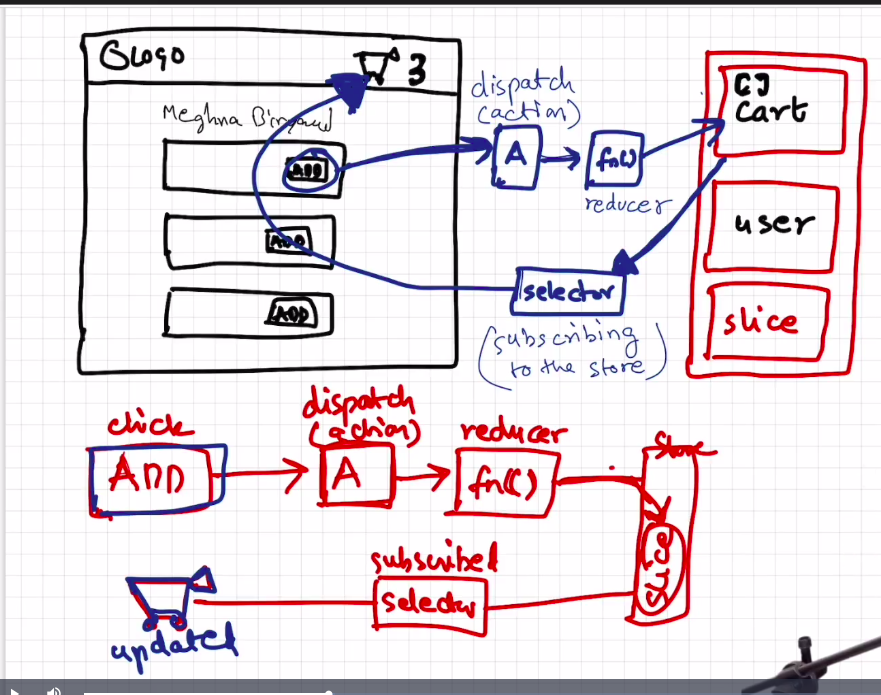 Logo
3
Meghna Biryani
ADD
ADD
ADD
dispatch
(action)
A
fn()
reducer
selector
(subscribing
to the store)
[]
cart
user
slice
click
ADD
dispatch
(action)
A
reducer
fn()
store
slice
subscribed
selector
updated